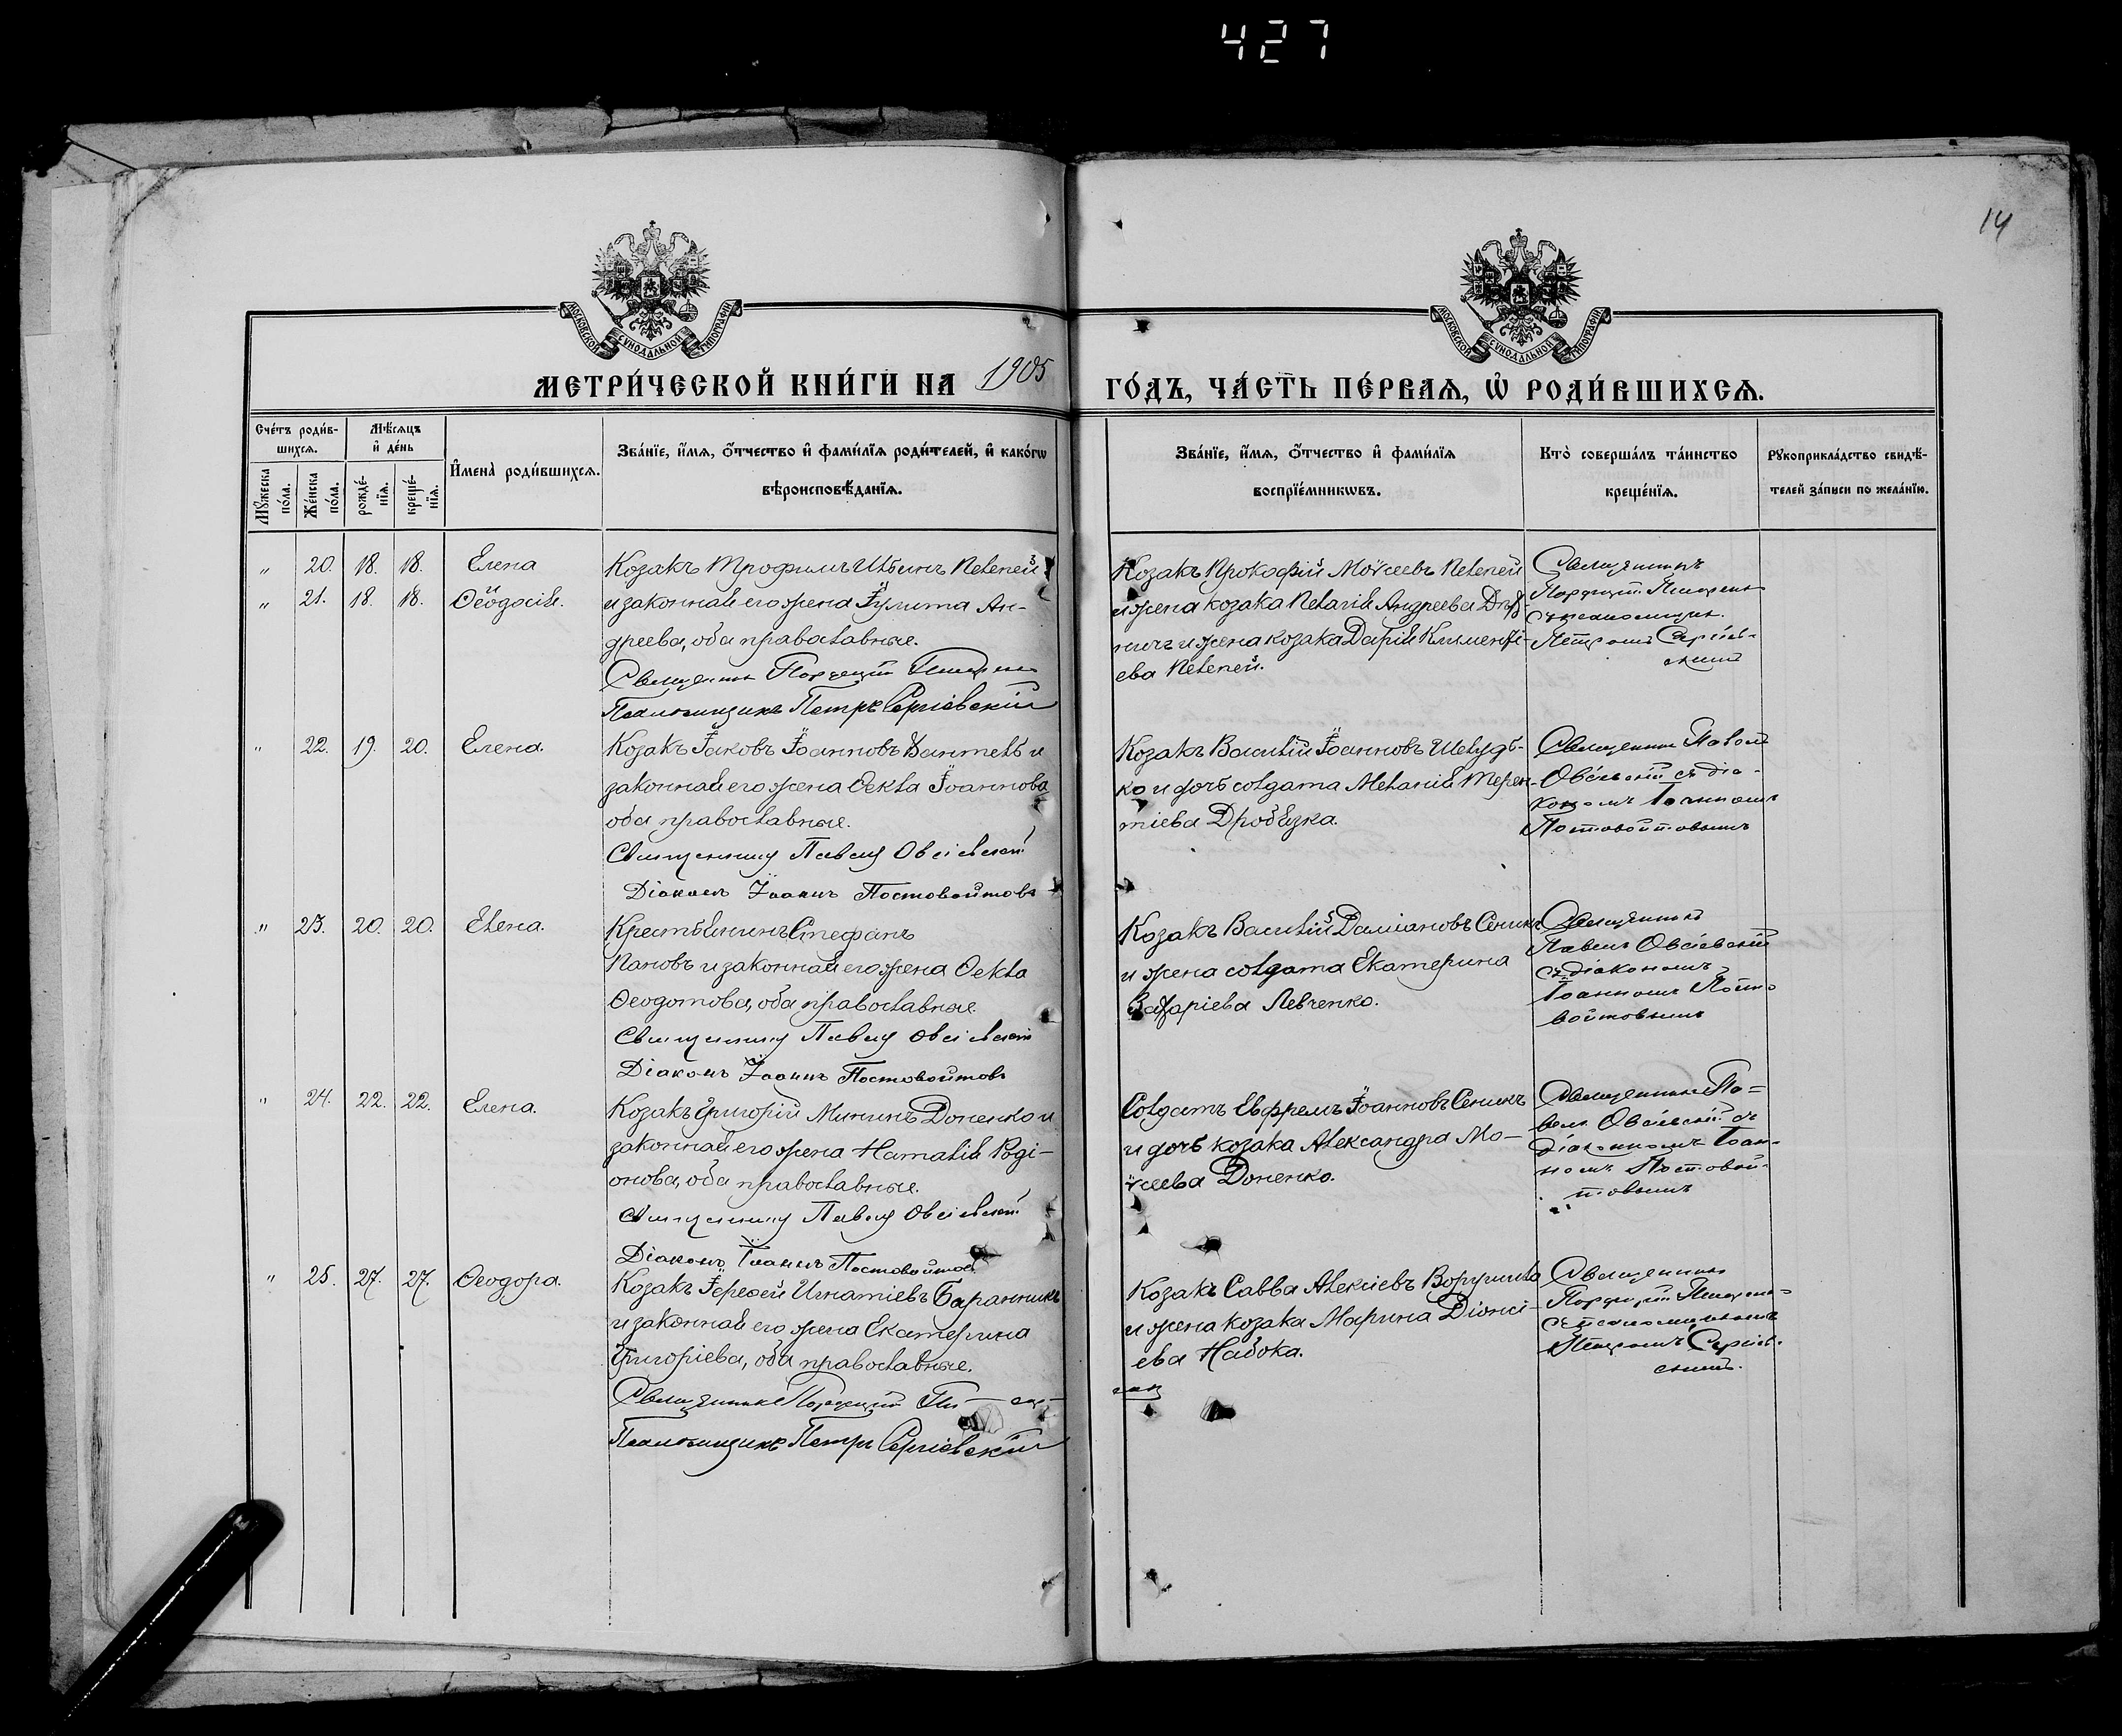 427
14
МОСКОВСКОЙ СѴНОДАЛЬНОЙ ТИПОГРАФІИ
МОСКОВСКОЙ СѴНОДАЛЬНОЙ ТИПОГРАФІИ
МЕТРИ́ЧЕСКОЙ КНИ́ГИ НА 1905
ГО́ДЪ, ЧА́СТЬ ПЕ́РВАЯ, Ѡ҆ РОДИ́ВШИХСЯ.
Сче́тъ роди́в-
шихся.
Мꙋ́жеска по́ла.
Же́нска по́ла.
Мѣ́сяцъ
и҆ де́нь
рожде́-
нїя.
креще́-
нїя.
И҆мена̀ роди́вшихся.
Зва́нїе, и҆́мя, ѻ҆́тчество и҆ фами́лїя роди́телей, и҆ како́гѡ
вѣроисповѣ́данїя.
Зва́нїе, и҆́мя, ѻ҆́тчество и҆ фами́лїя
воспрїе́мникѡвъ.
Кто̀ соверша́лъ та́инство
креще́нїя.
Рꙋкоприкла́дство свидѣ́-
телей за́писи по жела́нїю.
" 20. 18. 18. Елена
" 21. 18. 18. Ѳеодосія.
Козакъ Трофимъ Пелепей
и законная его жена Іулита Ан-
дреева, оба православные.
Священникъ
Псаломщикъ Петръ Сергіевскій
Козакъ Прокофій Моѵсеевъ Пелепей
и жена козака Пелагія Андреева
и жена козака Дарія
ева Пелепей.
Священникъ
съ псаломщик.
Петромъ Сергіев-
скимъ
" 22. 19. 20. Елена.
Козакъ Іаковъ Іоанновъ и
законная его жена Ѳекла Іоаннова
оба православные.
Священникъ Павелъ Овсіевскій
Діаконъ Іоаннъ Постовойтовъ
Козакъ Василій Іоанновъ Шелудь-
ко и дочь солдата Меланія Терен-
тіева Дробязка.
Священникъ Павелъ
Овсіевскій съ діа-
кономъ Іоанномъ
Постовойтовымъ
" 23. 20. 20. Елена.
Крестьянинъ Стефанъ
Пановъ и законная его жена Ѳекла
Ѳеодотова, оба православные.
Священникъ Павелъ Овсіевскій
Діаконъ Іоаннъ Постовойтовъ
Козакъ Василій Даміановъ Сеникъ
и жена солдата Екатерина
Захаріева Левченко.
Священникъ
Павелъ Овсіевскій
съ діакономъ
Іоанномъ Посто-
войтовымъ
" 24. 22. 22. Елена.
Козакъ Григорій Мининъ Доненко и
законная его жена Наталія Роді-
онова, оба православные.
Священникъ Павелъ Овсіевскій
Діаконъ Іоаннъ Постовойтовъ
Солдатъ Ефремъ Іоанновъ Сеникъ
и дочь козака Александра Мо-
ѵсеева Доненко.
Священникъ Па-
велъ Овсіевскій съ
діакономъ Іоан-
номъ Постовой-
товымъ
" 25. 27. 27. Ѳеодора.
Козакъ Іеремей Игнатіевъ Баранникъ
и законная его жена Екатерина
Григоріева, оба православные.
Священникъ
Псаломщикъ Петръ Сергіевскій
Козакъ Савва Алексіевъ
и жена козака Марина Діонисі-
ева Набока.
Священникъ
съ псаломщикомъ
Петромъ Сергіев-
скимъ.